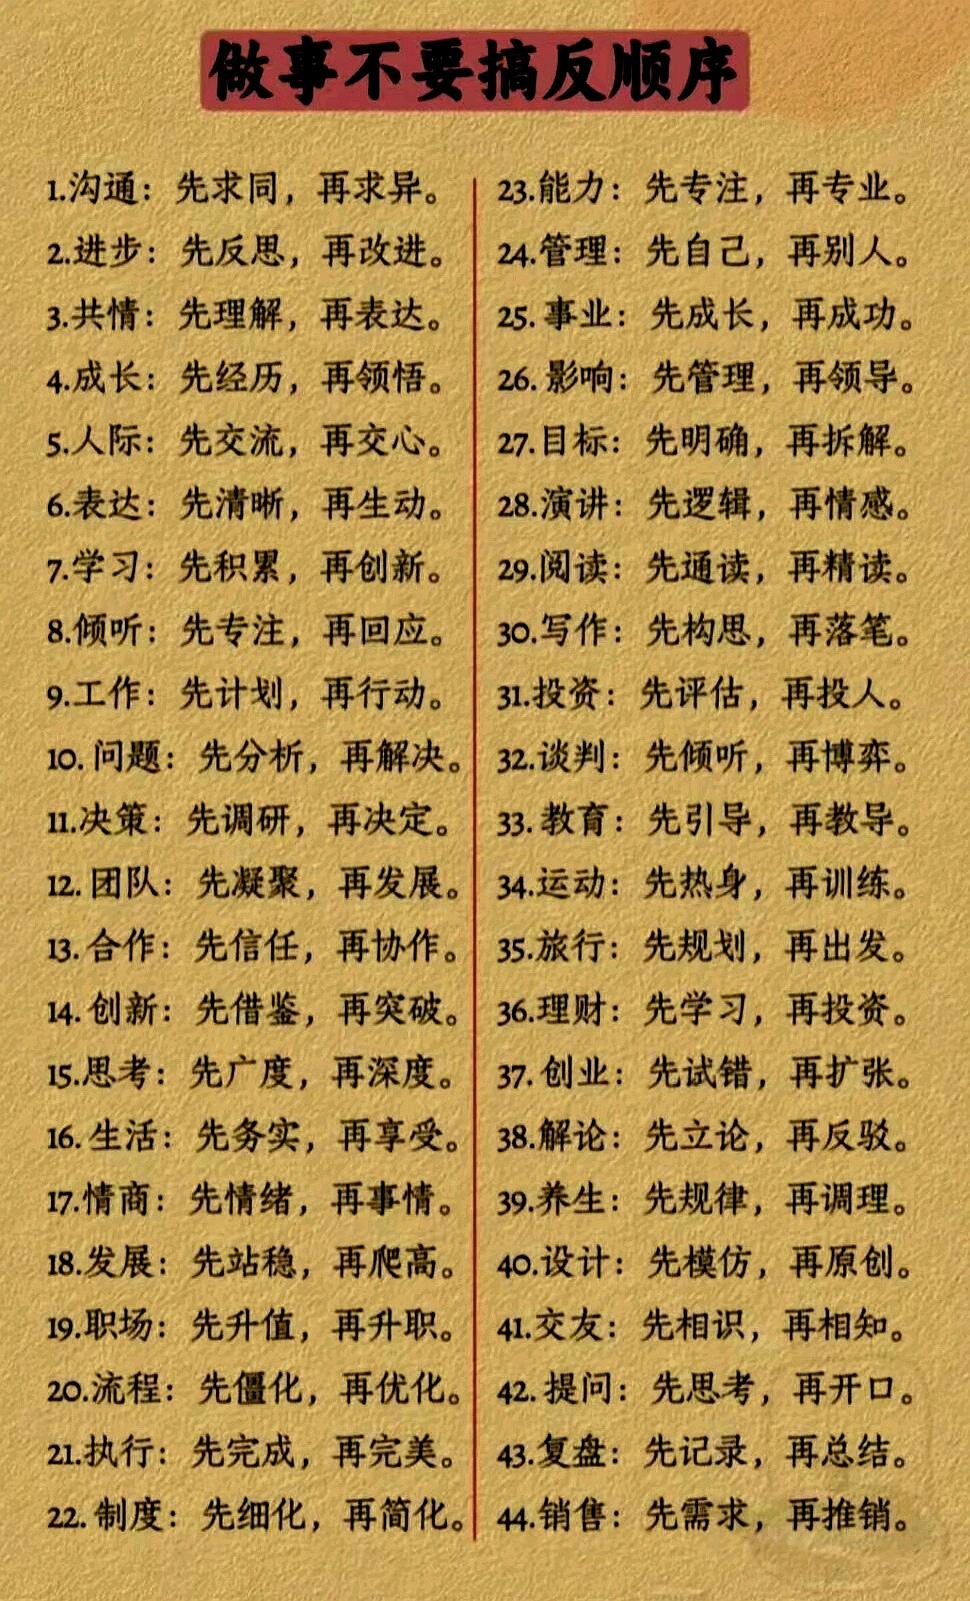 做事不要搞反顺序
1.沟通：先求同，再求异。
2.进步：先反思，再改进。
3.共情：先理解，再表达。
4.成长：先经历，再领悟。
5.人际：先交流，再交心。
6.表达：先清晰，再生动。
7.学习：先积累，再创新。
8.倾听：先专注，再回应。
9.工作：先计划，再行动。
10.问题：先分析，再解决。
11.决策：先调研，再决定。
12.团队：先凝聚，再发展。
13.合作：先信任，再协作。
14.创新：先借鉴，再突破。
15.思考：先广度，再深度。
16.生活：先务实，再享受。
17.情商：先情绪，再事情。
18.发展：先站稳，再爬高。
19.职场：先升值，再升职。
20.流程：先僵化，再优化。
21.执行：先完成，再完美。
22.制度：先细化，再简化。
23.能力：先专注，再专业。
24.管理：先自己，再别人。
25.事业：先成长，再成功。
26.影响：先管理，再领导。
27.目标：先明确，再拆解。
28.演讲：先逻辑，再情感。
29.阅读：先通读，再精读。
30.写作：先构思，再落笔。
31.投资：先评估，再投人。
32.谈判：先倾听，再博弈。
33.教育：先引导，再教导。
34.运动：先热身，再训练。
35.旅行：先规划，再出发。
36.理财：先学习，再投资。
37.创业：先试错，再扩张。
38.解论：先立论，再反驳。
39.养生：先规律，再调理。
40.设计：先模仿，再原创。
41.交友：先相识，再相知。
42.提问：先思考，再开口。
43.复盘：先记录，再总结。
44.销售：先需求，再推销。